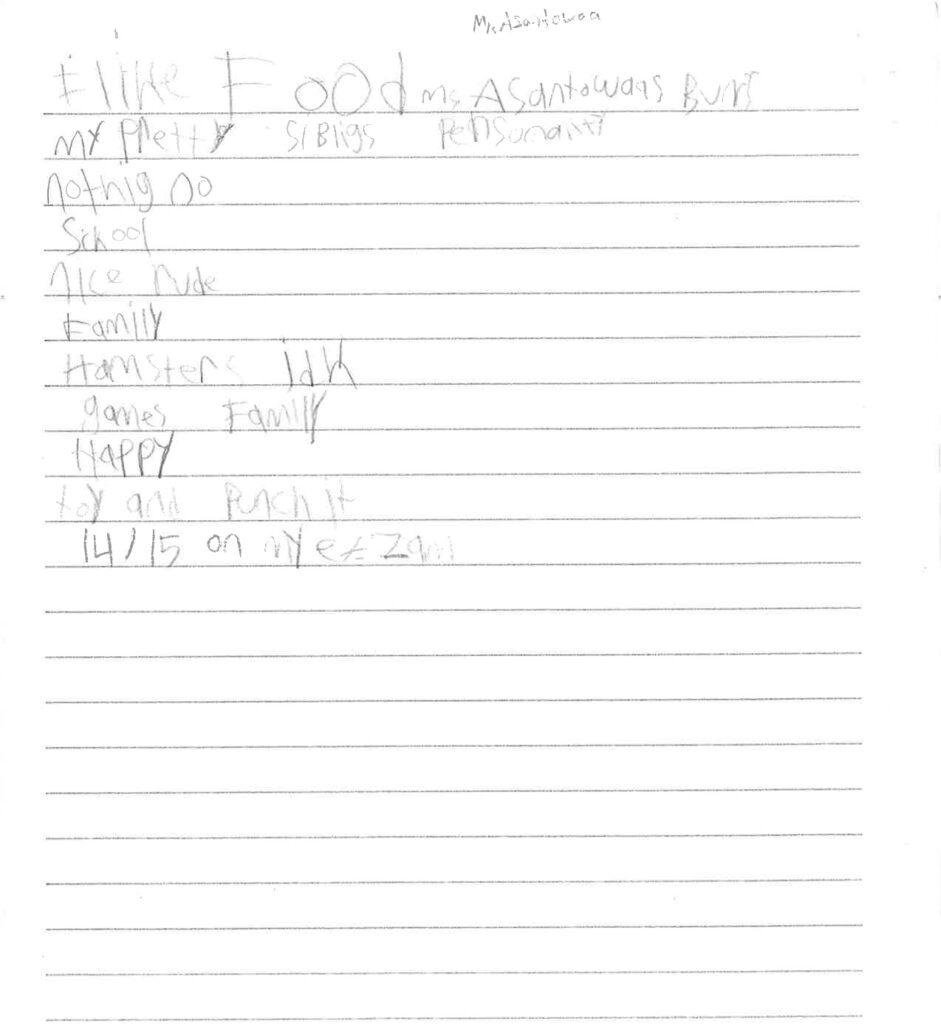 Ms Asantowaa
I like Food ms Asantowaas Buns
my pretty siBligs Persomanity
nothig no
School
nice rude
Familly
Hamsters idk
games Familly
Happy
toy and Punch it
14/15 on my